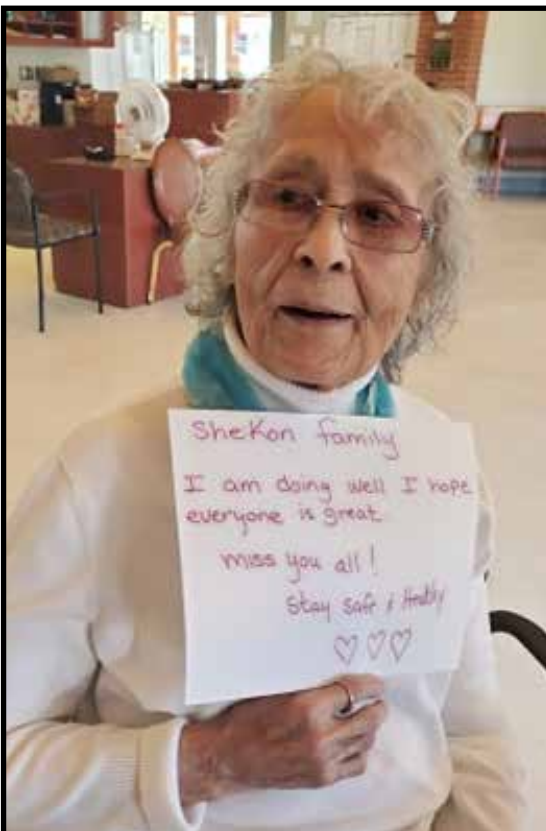 SheKon family
I am doing well I hope
everyone is great
miss you all!
Stay Safe & Healthy
♡♡♡